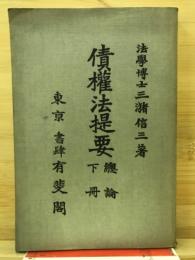 法學博士三潴信三著
債權法提要 總論 下冊
東京 書肆 有斐閣